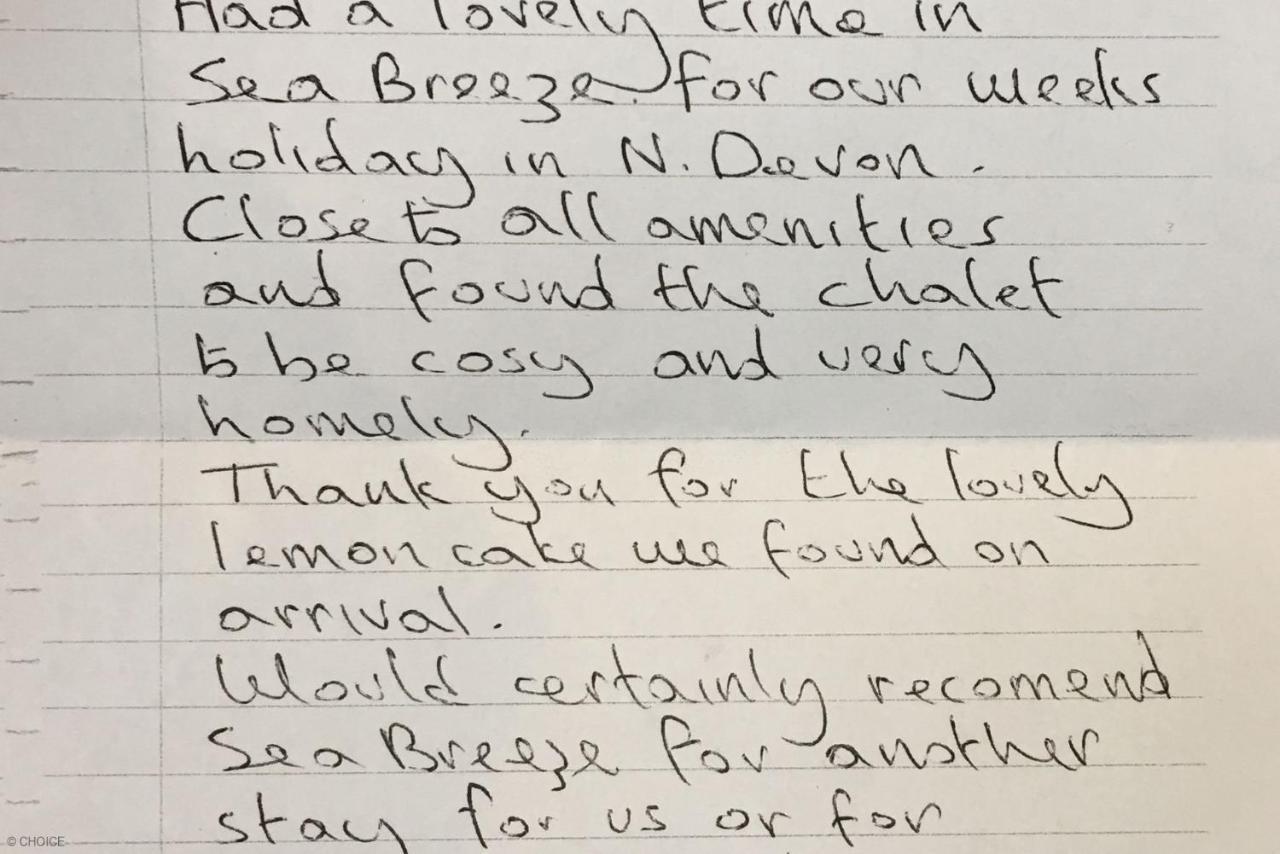 Had a lovely time in
Sea Breeze for our weeks
holiday in N. Devon.
Close to all amenities
and found the chalet
to be cosy and very
homely.
Thank you for the lovely
lemon cake we found on
arrival.
Would certainly recomend
Sea Breeze for another
stay for us or for
© CHOICE